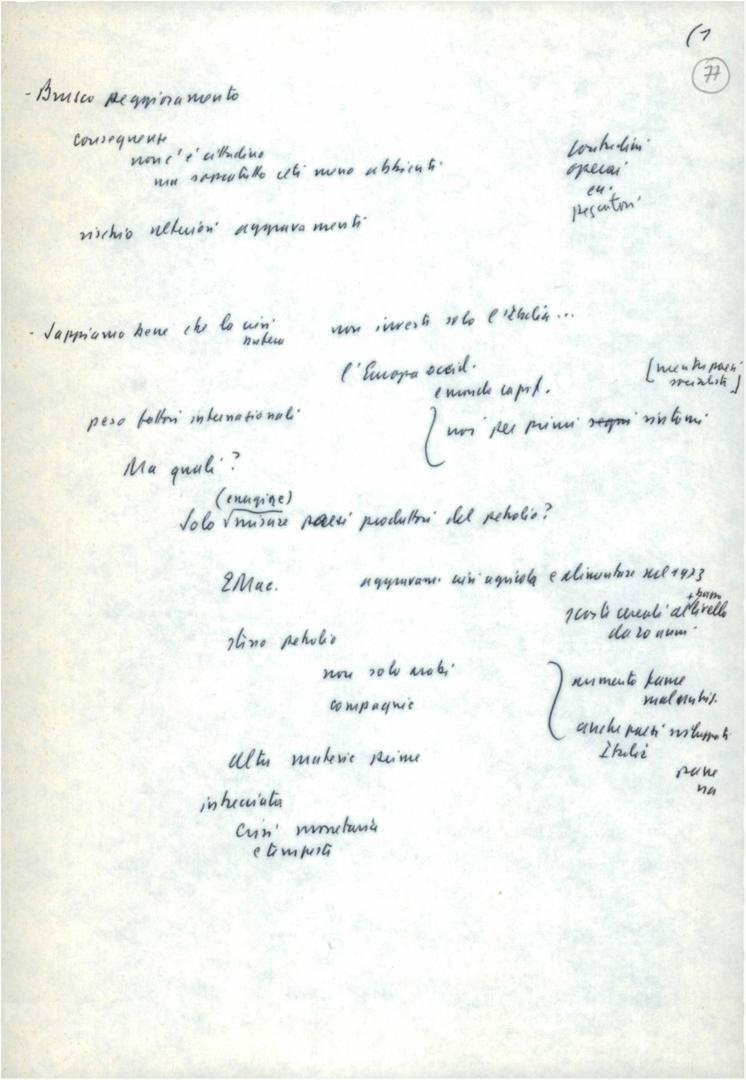 (1
77
- Brusco peggioramento
conseguenze
non c'è cittadino
ma soprattutto ceti meno abbienti
contadini
operai
ed.
pescatori
rischio ulteriori aggravamenti
- Sappiamo bene che la crisi non investe solo l'Italia...
l'Europa occid.
e mondo capit.
[mentre paesi
socialisti]
peso fattori internazionali
noi per primi segni sintomi
Ma quali?
(energine)
Solo √misure paesi produttori del petrolio?
aggravam. crisi agricola e alimentare nel 1973
scorte cereali al livello
+ basso
da 20 anni
stesso petrolio
non solo arabi
compagnie
aumento fame
malnutriz.
anche paesi sviluppati
Italia
pane
altre materie prime
intrecciata
Crisi monetaria
e tempesta